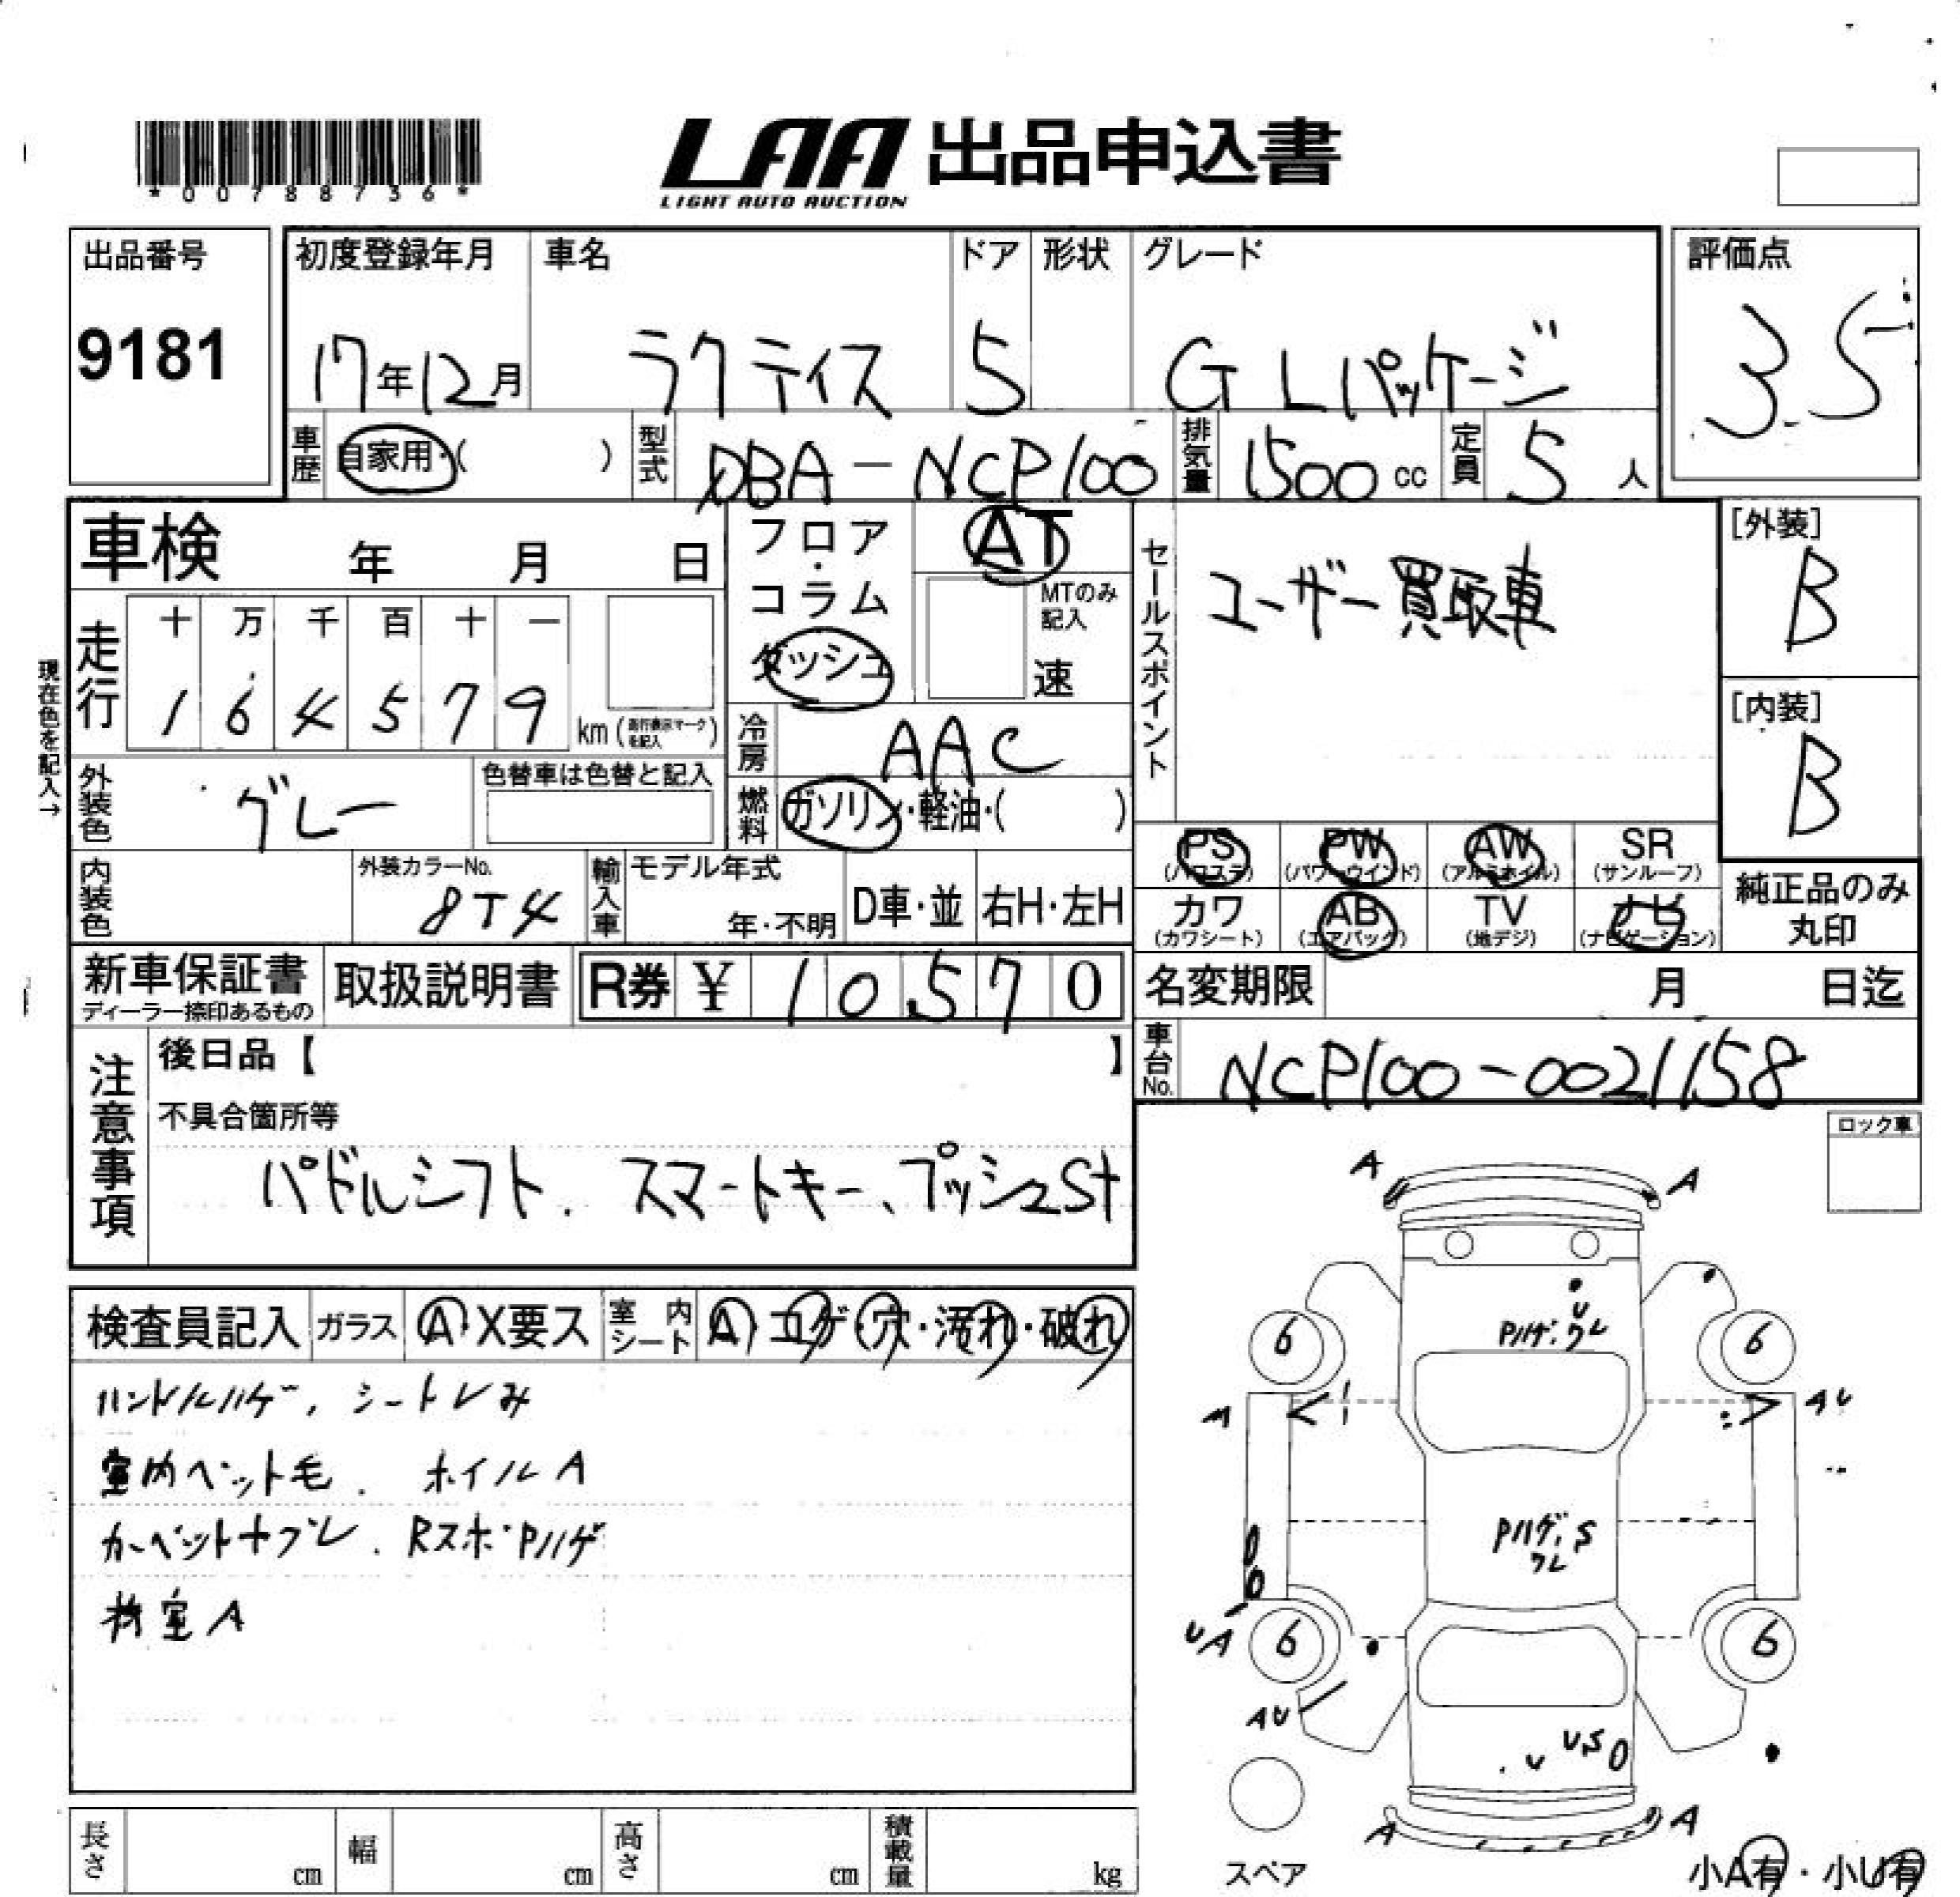 *0078873 6*
LAA 出品申込書
LIGHT AUTO AUCTION
出品番号
9181
初度登録年月
17年12月
車名
ラクティス
ドア
5
形状
グレード
G Lパッケージ
評価点
3.5
車歴 自家用・( )
型式 DBA-NCP100
排気量 1500 cc
定員 5 人
車検 年 月 日
フロア・コラム
ダッシュ
AT
MTのみ記入
速
セールスポイント
ユーザー買取車
[外装]
B
[内装]
B
現在色を記入→
走行
十 万 千 百 十 一
1 6 4 5 7 9 km (走行表示マークを記入)
冷房 AAC
外装色 グレー
色替車は色替と記入
燃料 ガソリン・軽油・( )
PS (パワステ)
PW (パワーウインド)
AW (アルミホイル)
SR (サンルーフ)
カワ (カワシート)
AB (エアバック)
TV (地デジ)
ナビ (ナビゲーション)
純正品のみ丸印
内装色
外装カラーNo.
8T4
輸入車
モデル年式
年・不明
D車・並
右H・左H
新車保証書
ディーラー捺印あるもの
取扱説明書
R券 ¥ 10570
名変期限 月 日迄
車台No. NCP100-0021158
注意事項
後日品【 】
不具合箇所等
パドルシフト. スマートキー、プッシュSt
ロック車
検査員記入 ガラス A・X要ス 室内シート A・コゲ・穴・汚れ・破れ
ハンドルハゲ, シートシみ
室内ペット毛. ホイルA
カーペットヤブレ. Rスポ・Pハゲ
荷室A
A A
U
Pハゲ. ワレ
6 6
A AU
Pハゲ. S
ワレ
UA 6 6
AU
U US
A A
スペア
小A有・小U有
長さ cm 幅 cm 高さ cm 積載量 kg